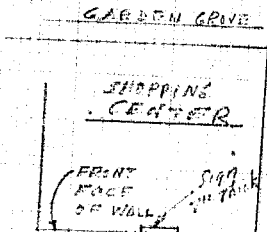 GARDEN GROVE
SHOPPING
CENTER
FRONT
FACE
OF WALL
Sign